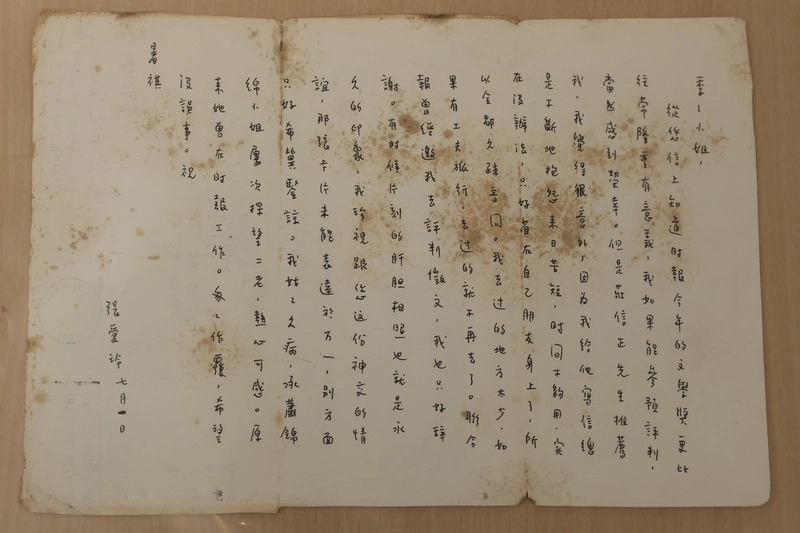 季季小姐，
從您信上知道時報今年的文學獎更比
往常隆重有意義，我如果能參預評判，
當然感到榮幸。但是莊信正先生推薦
我，我覺得很意外，因為我給他寫信總
是不斷地抱怨來日苦短，時間不夠用，實
在沒辦法，只好省在自己朋友身上了，所
以全都久疎音問。我去过的地方太少，如
果有工夫旅行，去过的就不再去了。聯合
報曾經邀我去評判徵文，我也只好辞
謝。有时候片刻的肝胆相照也就是永
久的印象，我珍視跟您这份神交的情
誼，那張卡片未能表達於万一，別方面
只好希冀鑒諒。我姑姑久病，承蕭錦
綿小姐屢次探望二老，熱心可感。原
來她曾在时報工作。匆匆作覆，希望
沒誤事。祝
暑祺
張愛玲 七月一日